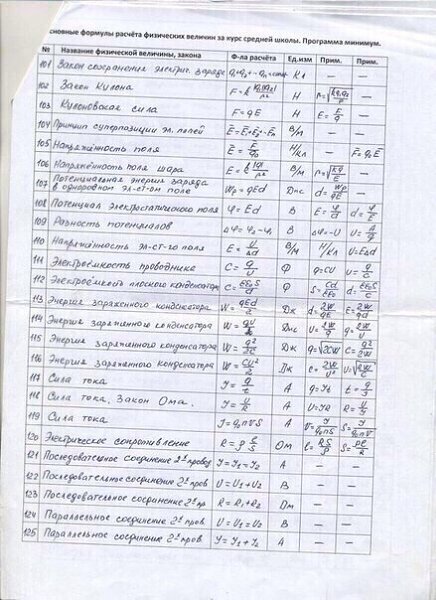 сновные формулы расчёта физических величин за курс средней школы. Программа минимум.
№ Название физической величины, закона Ф-ла расчёта Ед.изм Прим. Прим.
101 Закон сохранения электрич. заряда q₁+q₂+-qₙ=const Кл — —
102 Закон Кулона F=k |q₁||q₂|/r² Н r=√(kq₁q₂/F) —
103 Кулоновская сила F=qE Н E=F/q —
104 Принцип суперпозиции эл. полей E̅=E̅₁+E̅₂+E̅ₙ В/м — —
105 Напряжённость поля E̅=F̅/q₀ Н/кл — F̅=q₀E̅
106 Напряжённость поля шара E=k|q|/r² В/м r=√(kq/E) —
107 Потенциальная энергия заряда
в однородном эл-ст-ом поле Wp=qEd Дж d=Wp/qE —
108 Потенциал электростатического поля φ=Ed В E=φ/d d=φ/E
109 Разность потенциалов Δφ=φ₂-φ₁ В Δφ=-U U=A/q
110 Напряжённость эл-ст-го поля E=U/Δd В/м Н/Кл U=EΔd
111 Электроёмкость проводника C=q/U Ф q=CU U=q/C
112 Электроёмкость плоского конденсатора C=εε₀S/d Ф S=Cd/εε₀ d=εε₀S/C
113 Энергия заряженного конденсатора W=qEd/2 Дж d=2W/qE E=2W/qd
114 Энергия заряженного конденсатора W=qU/2 Дж U=2W/q q=2W/U
115 Энергия заряженного конденсатора W=q²/2C Дж q=√2CW C=q²/2W
116 Энергия заряженного конденсатора W=CU²/2 Дж C=2W/U² U=√(2W/C)
117 Сила тока I=q/t А q=It t=q/I
118 Сила тока. Закон Ома. I=U/R А U=IR R=U/I
119 Сила тока I=q₀nVS А V=I/q₀nS S=I/q₀nV
120 Электрическое сопротивление R=ρ ℓ/S Ом ℓ=RS/ρ S=ρℓ/R
121 Последовательное соединение 2ˣ провод I=I₁=I₂ А — —
122 Последовательное соединение 2ˣ пров U=U₁+U₂ В — —
123 Последовательное соединение 2ˣ пр R=R₁+R₂ Ом — —
124 Параллельное соединение 2ˣ пров. U=U₁=U₂ В — —
125 Параллельное соединение 2ˣ пров. I=I₁+I₂ А — —